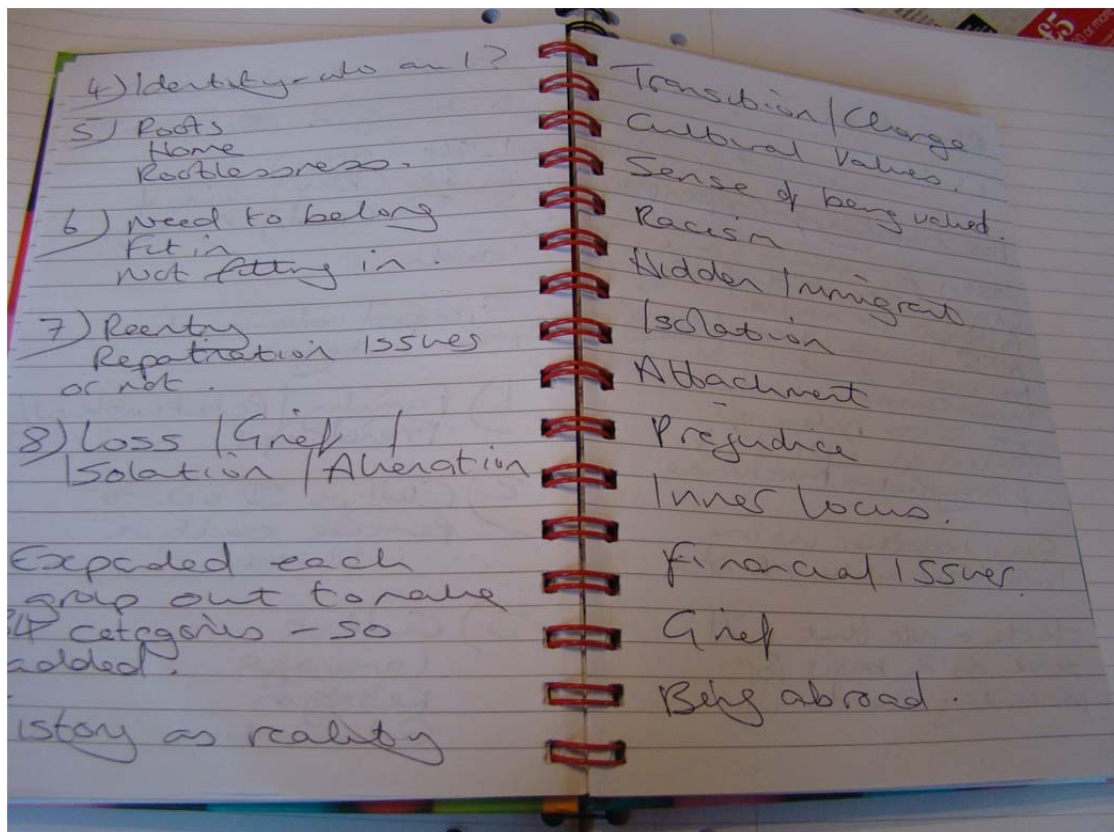 4) Identity - who am I?
5) Roots
Home
Rootlessness.
6) Need to belong
Fit in
Not fitting in.
7) Reentry
Repatriation Issues
or not.
8) Loss / Grief /
Isolation / Alienation
Expaded each
group out to make
34 categories - so
added.
istory as reality
Transition / Change
Cultural Values.
Sense of being valued.
Racism
Hidden Immigrant
Isolation
Attachment
Prejudice
Inner Locus.
Financial Issues.
Grief
Being abroad.
£5
or more